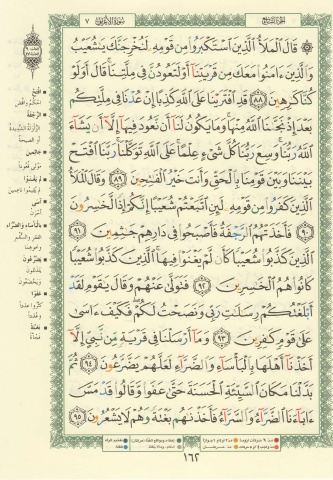 الجزء التاسع
سورة الأعراف ٧
قَالَ ٱلْمَلَأُ ٱلَّذِينَ ٱسْتَكْبَرُوا۟ مِن قَوْمِهِۦ لَنُخْرِجَنَّكَ يَٰشُعَيْبُ
وَٱلَّذِينَ ءَامَنُوا۟ مَعَكَ مِن قَرْيَتِنَآ أَوْ لَتَعُودُنَّ فِى مِلَّتِنَا قَالَ أَوَلَوْ
كُنَّا كَٰرِهِينَ ٨٨ قَدِ ٱفْتَرَيْنَا عَلَى ٱللَّهِ كَذِبًا إِنْ عُدْنَا فِى مِلَّتِكُم
بَعْدَ إِذْ نَجَّىٰنَا ٱللَّهُ مِنْهَا وَمَا يَكُونُ لَنَآ أَن نَّعُودَ فِيهَآ إِلَّآ أَن يَشَآءَ
ٱللَّهُ رَبُّنَا وَسِعَ رَبُّنَا كُلَّ شَىْءٍ عِلْمًا عَلَى ٱللَّهِ تَوَكَّلْنَا رَبَّنَا ٱفْتَحْ
بَيْنَنَا وَبَيْنَ قَوْمِنَا بِٱلْحَقِّ وَأَنتَ خَيْرُ ٱلْفَٰتِحِينَ ٨٩ وَقَالَ ٱلْمَلَأُ
ٱلَّذِينَ كَفَرُوا۟ مِن قَوْمِهِۦ لَئِنِ ٱتَّبَعْتُمْ شُعَيْبًا إِنَّكُمْ إِذًا لَّخَٰسِرُونَ
٩٠ فَأَخَذَتْهُمُ ٱلرَّجْفَةُ فَأَصْبَحُوا۟ فِى دَارِهِمْ جَٰثِمِينَ ٩١
ٱلَّذِينَ كَذَّبُوا۟ شُعَيْبًا كَأَن لَّمْ يَغْنَوْا۟ فِيهَا ٱلَّذِينَ كَذَّبُوا۟ شُعَيْبًا
كَانُوا۟ هُمُ ٱلْخَٰسِرِينَ ٩٢ فَتَوَلَّىٰ عَنْهُمْ وَقَالَ يَٰقَوْمِ لَقَدْ
أَبْلَغْتُكُمْ رِسَٰلَٰتِ رَبِّى وَنَصَحْتُ لَكُمْ فَكَيْفَ ءَاسَىٰ
عَلَىٰ قَوْمٍ كَٰفِرِينَ ٩٣ وَمَآ أَرْسَلْنَا فِى قَرْيَةٍ مِّن نَّبِىٍّ إِلَّآ
أَخَذْنَآ أَهْلَهَا بِٱلْبَأْسَآءِ وَٱلضَّرَّآءِ لَعَلَّهُمْ يَضَّرَّعُونَ ٩٤ ثُمَّ
بَدَّلْنَا مَكَانَ ٱلسَّيِّئَةِ ٱلْحَسَنَةَ حَتَّىٰ عَفَوا۟ وَّقَالُوا۟ قَدْ مَسَّ
ءَابَآءَنَا ٱلضَّرَّآءُ وَٱلسَّرَّآءُ فَأَخَذْنَٰهُم بَغْتَةً وَهُمْ لَا يَشْعُرُونَ ٩٥
١٦٢